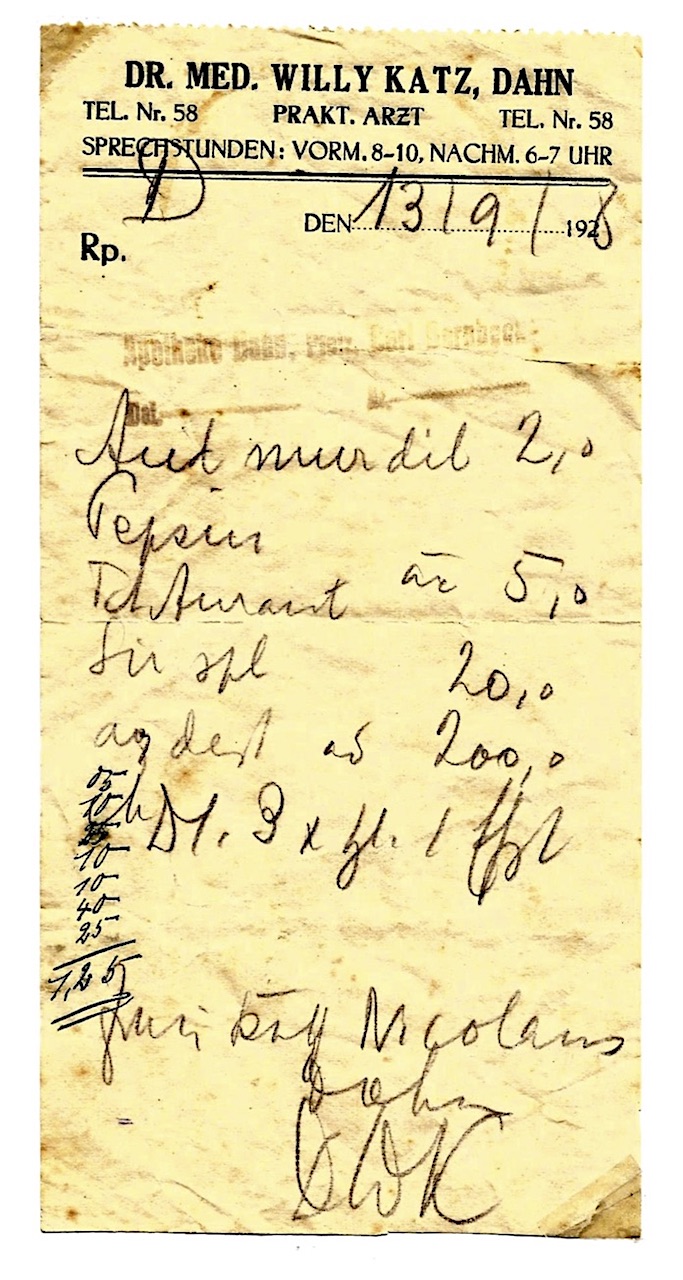 DR. MED. WILLY KATZ, DAHN
TEL. Nr. 58 PRAKT. ARZT TEL. Nr. 58
SPRECHSTUNDEN: VORM. 8-10, NACHM. 6-7 UHR
D
DEN 13/9/1928
Rp.
Apotheke Dahn, Carl
Dat.
Acid mur dil 2,0
Pepsin
aa 5,0
Sir spl 20,0
aq dest ad 200,0
3 x tgl. 1
05
10
25
10
10
40
25
1,25
Nicolaus
Dahn
DWK